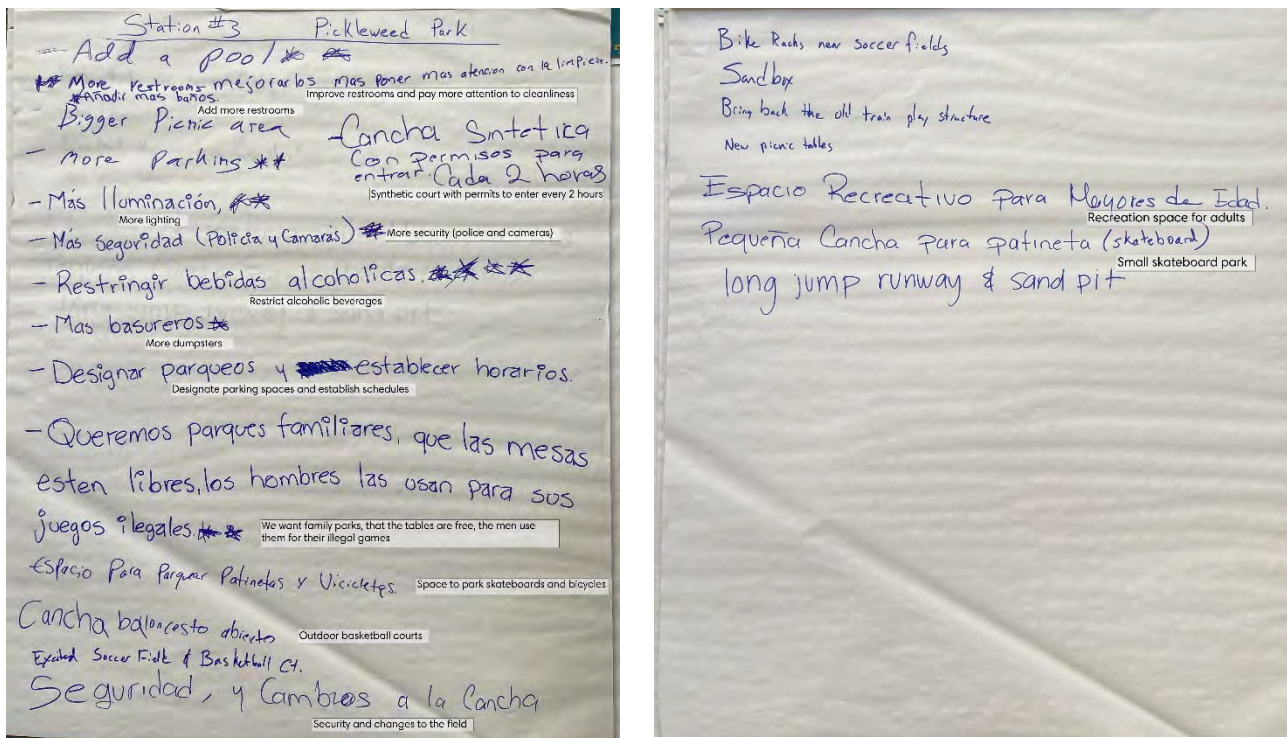 Station #3 Pickleweed Park
- Add a pool * *
** More restrooms mejorarlos mas poner mas atencion con la limpieza.
Improve restrooms and pay more attention to cleanliness
*Añadir mas baños.
Add more restrooms
Bigger Picnic area
- More Parking **
- Cancha Sintetica
Con permisos para
entrar. Cada 2 horas
Synthetic court with permits to enter every 2 hours
- Más Iluminación, **
More lighting
- Más Seguridad (Policía y Camaras) *
More security (police and cameras)
- Restringir bebidas alcoholicas. ****
Restrict alcoholic beverages
- Mas basureros *
More dumpsters
- Designar parqueos y establecer horarios.
Designate parking spaces and establish schedules
- Queremos parques familiares, que las mesas
esten libres, los hombres las usan para sus
juegos ilegales. **
We want family parks, that the tables are free, the men use
them for their illegal games
- Espacio Para Parquear Patinetas y Vicicletas.
Space to park skateboards and bicycles
Cancha baloncesto abierto
Outdoor basketball courts
Excited Soccer Field & Basketball Ct.
Seguridad, y Cambios a la Cancha
Security and changes to the field
Bike Racks new soccer fields
Sandbox
Bring back the old train play structure
New picnic tables
Espacio Recreativo Para Mayores de Edad.
Recreation space for adults
Pequeña Cancha para patineta (skateboard)
Small skateboard park
long jump runway & sand pit